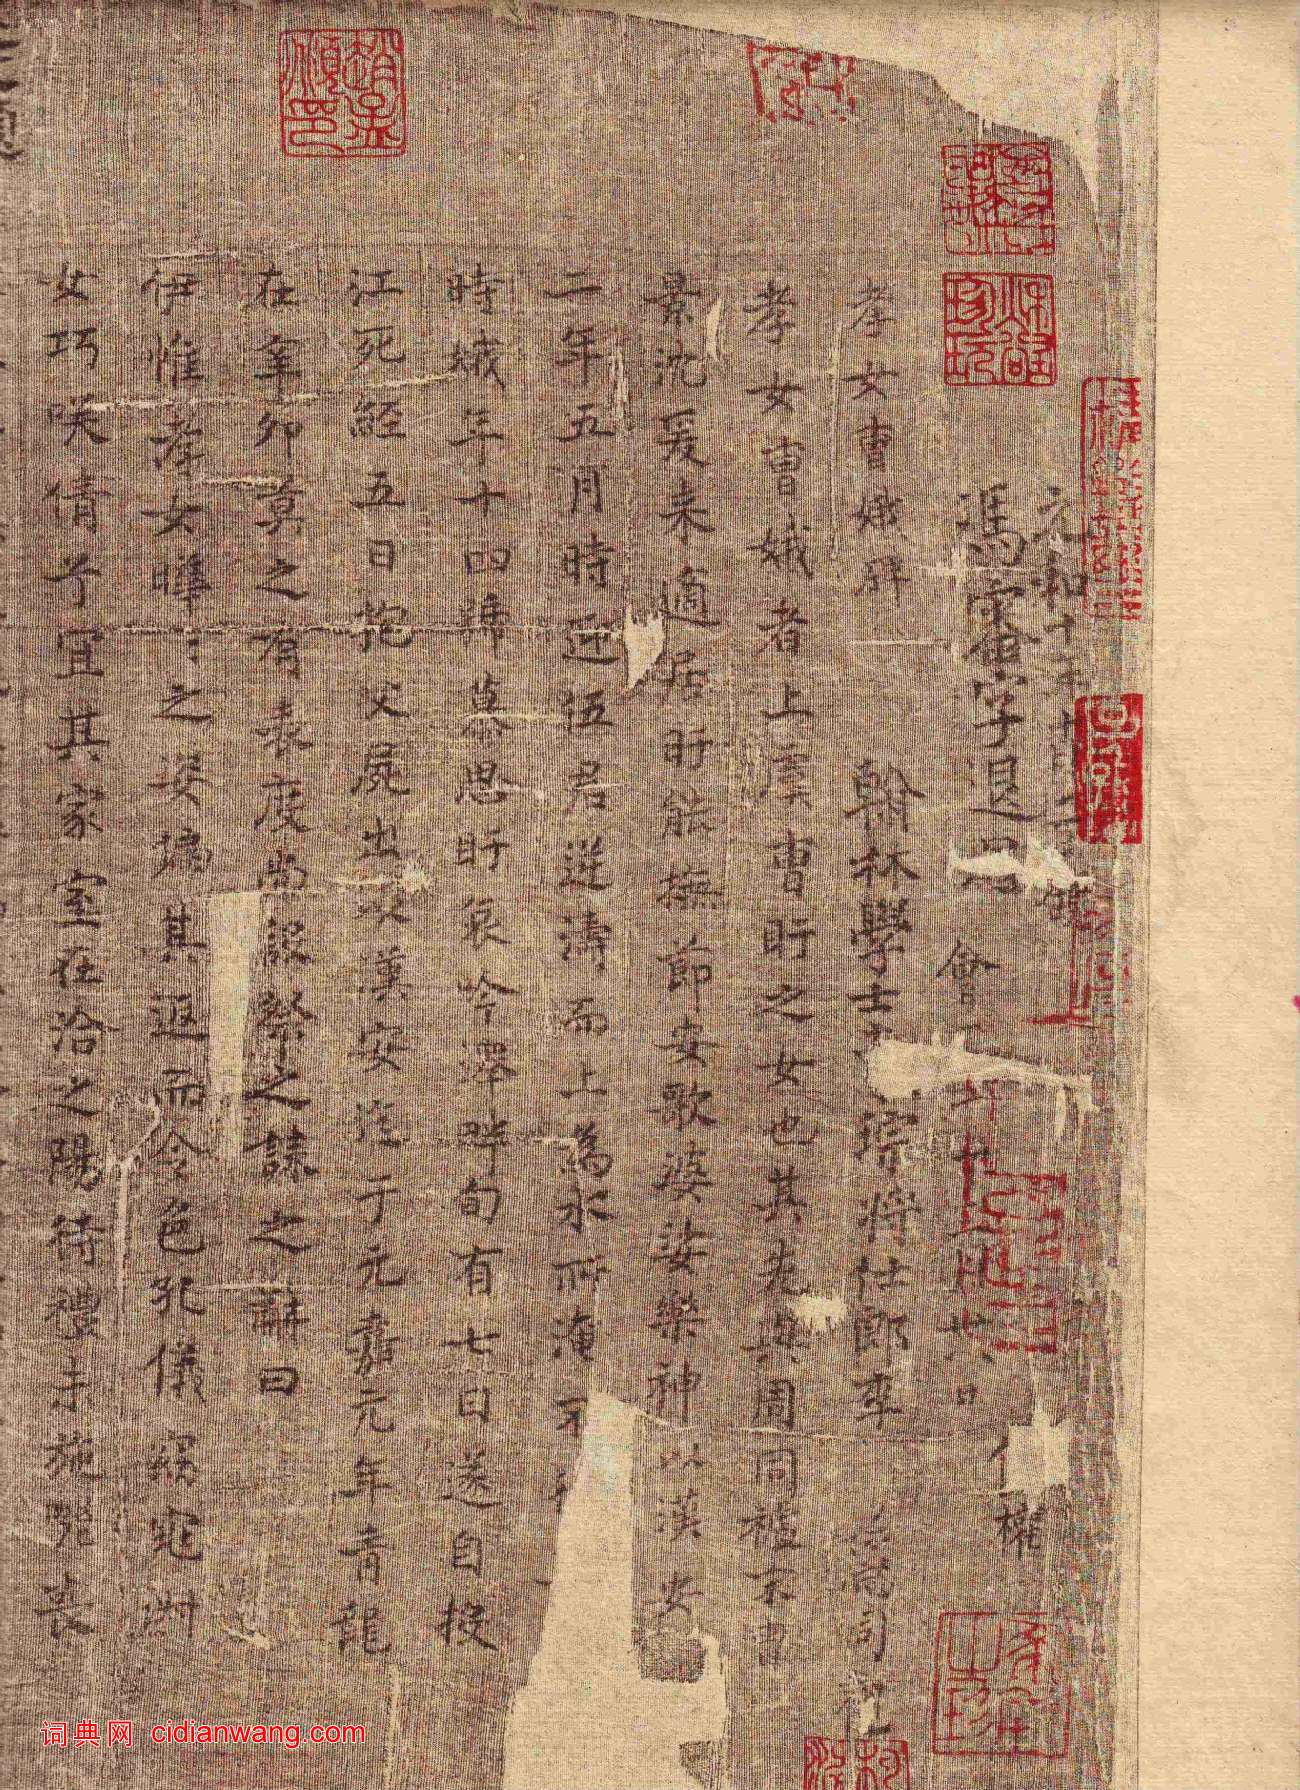 元和
馮審字退思
會 廿六日 權
孝女曹娥碑 翰林學士 宗 將仕郎李
孝女曹娥者上虞曹盱之女也其先與周同祖末胄
景沈爰来適居盱能撫節安歌婆娑樂神以漢安
二年五月時迎伍君逆濤而上為水所淹不
時娥年十四號慕思盱哀吟澤畔旬有七日遂自投
江死經五日抱父屍出以漢安迄于元嘉元年青龍
在辛卯莫之有表度尚設祭之誄之辭曰
伊惟孝女曄之姿偏其返而令色孔儀窈窕淑
女巧咲倩兮宜其家室在洽之陽待禮未施嗟喪
趙孟頫印
词典网 cidianwang.com